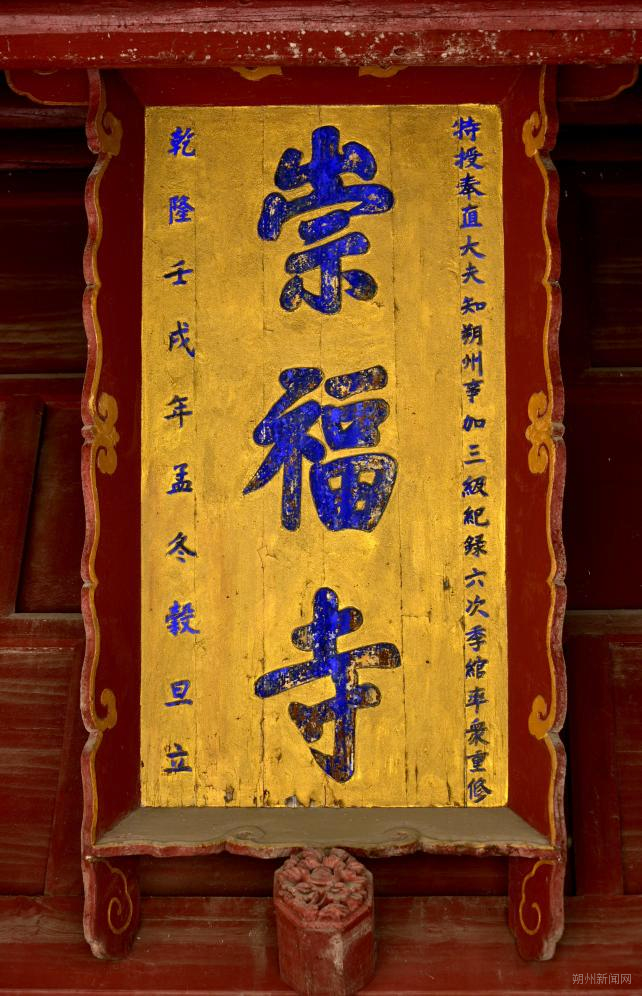 特授奉直大夫知朔州事加三級紀錄六次季綰率衆重修
崇福寺
乾隆壬戌年孟冬穀旦立
朔州新闻网